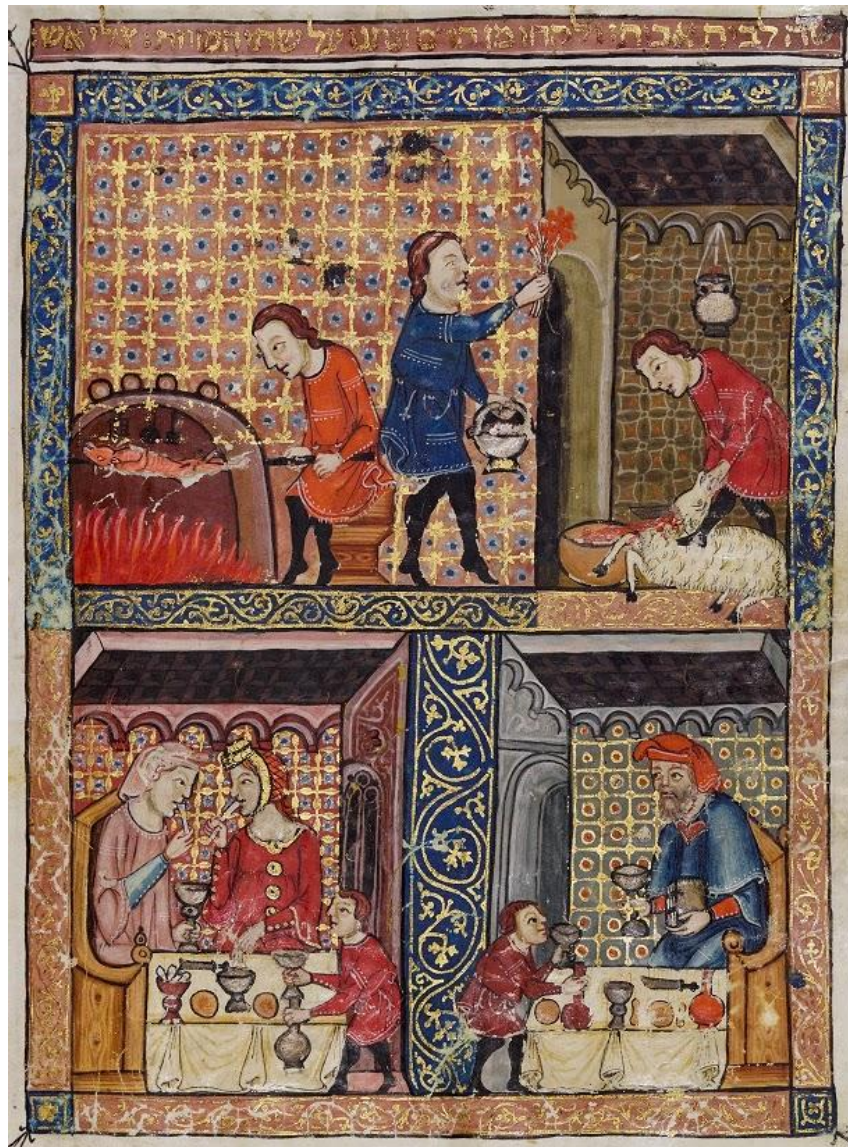 שה לבית ולקחו מן הדם ונתנו על שתי המזוזת: צלי אש